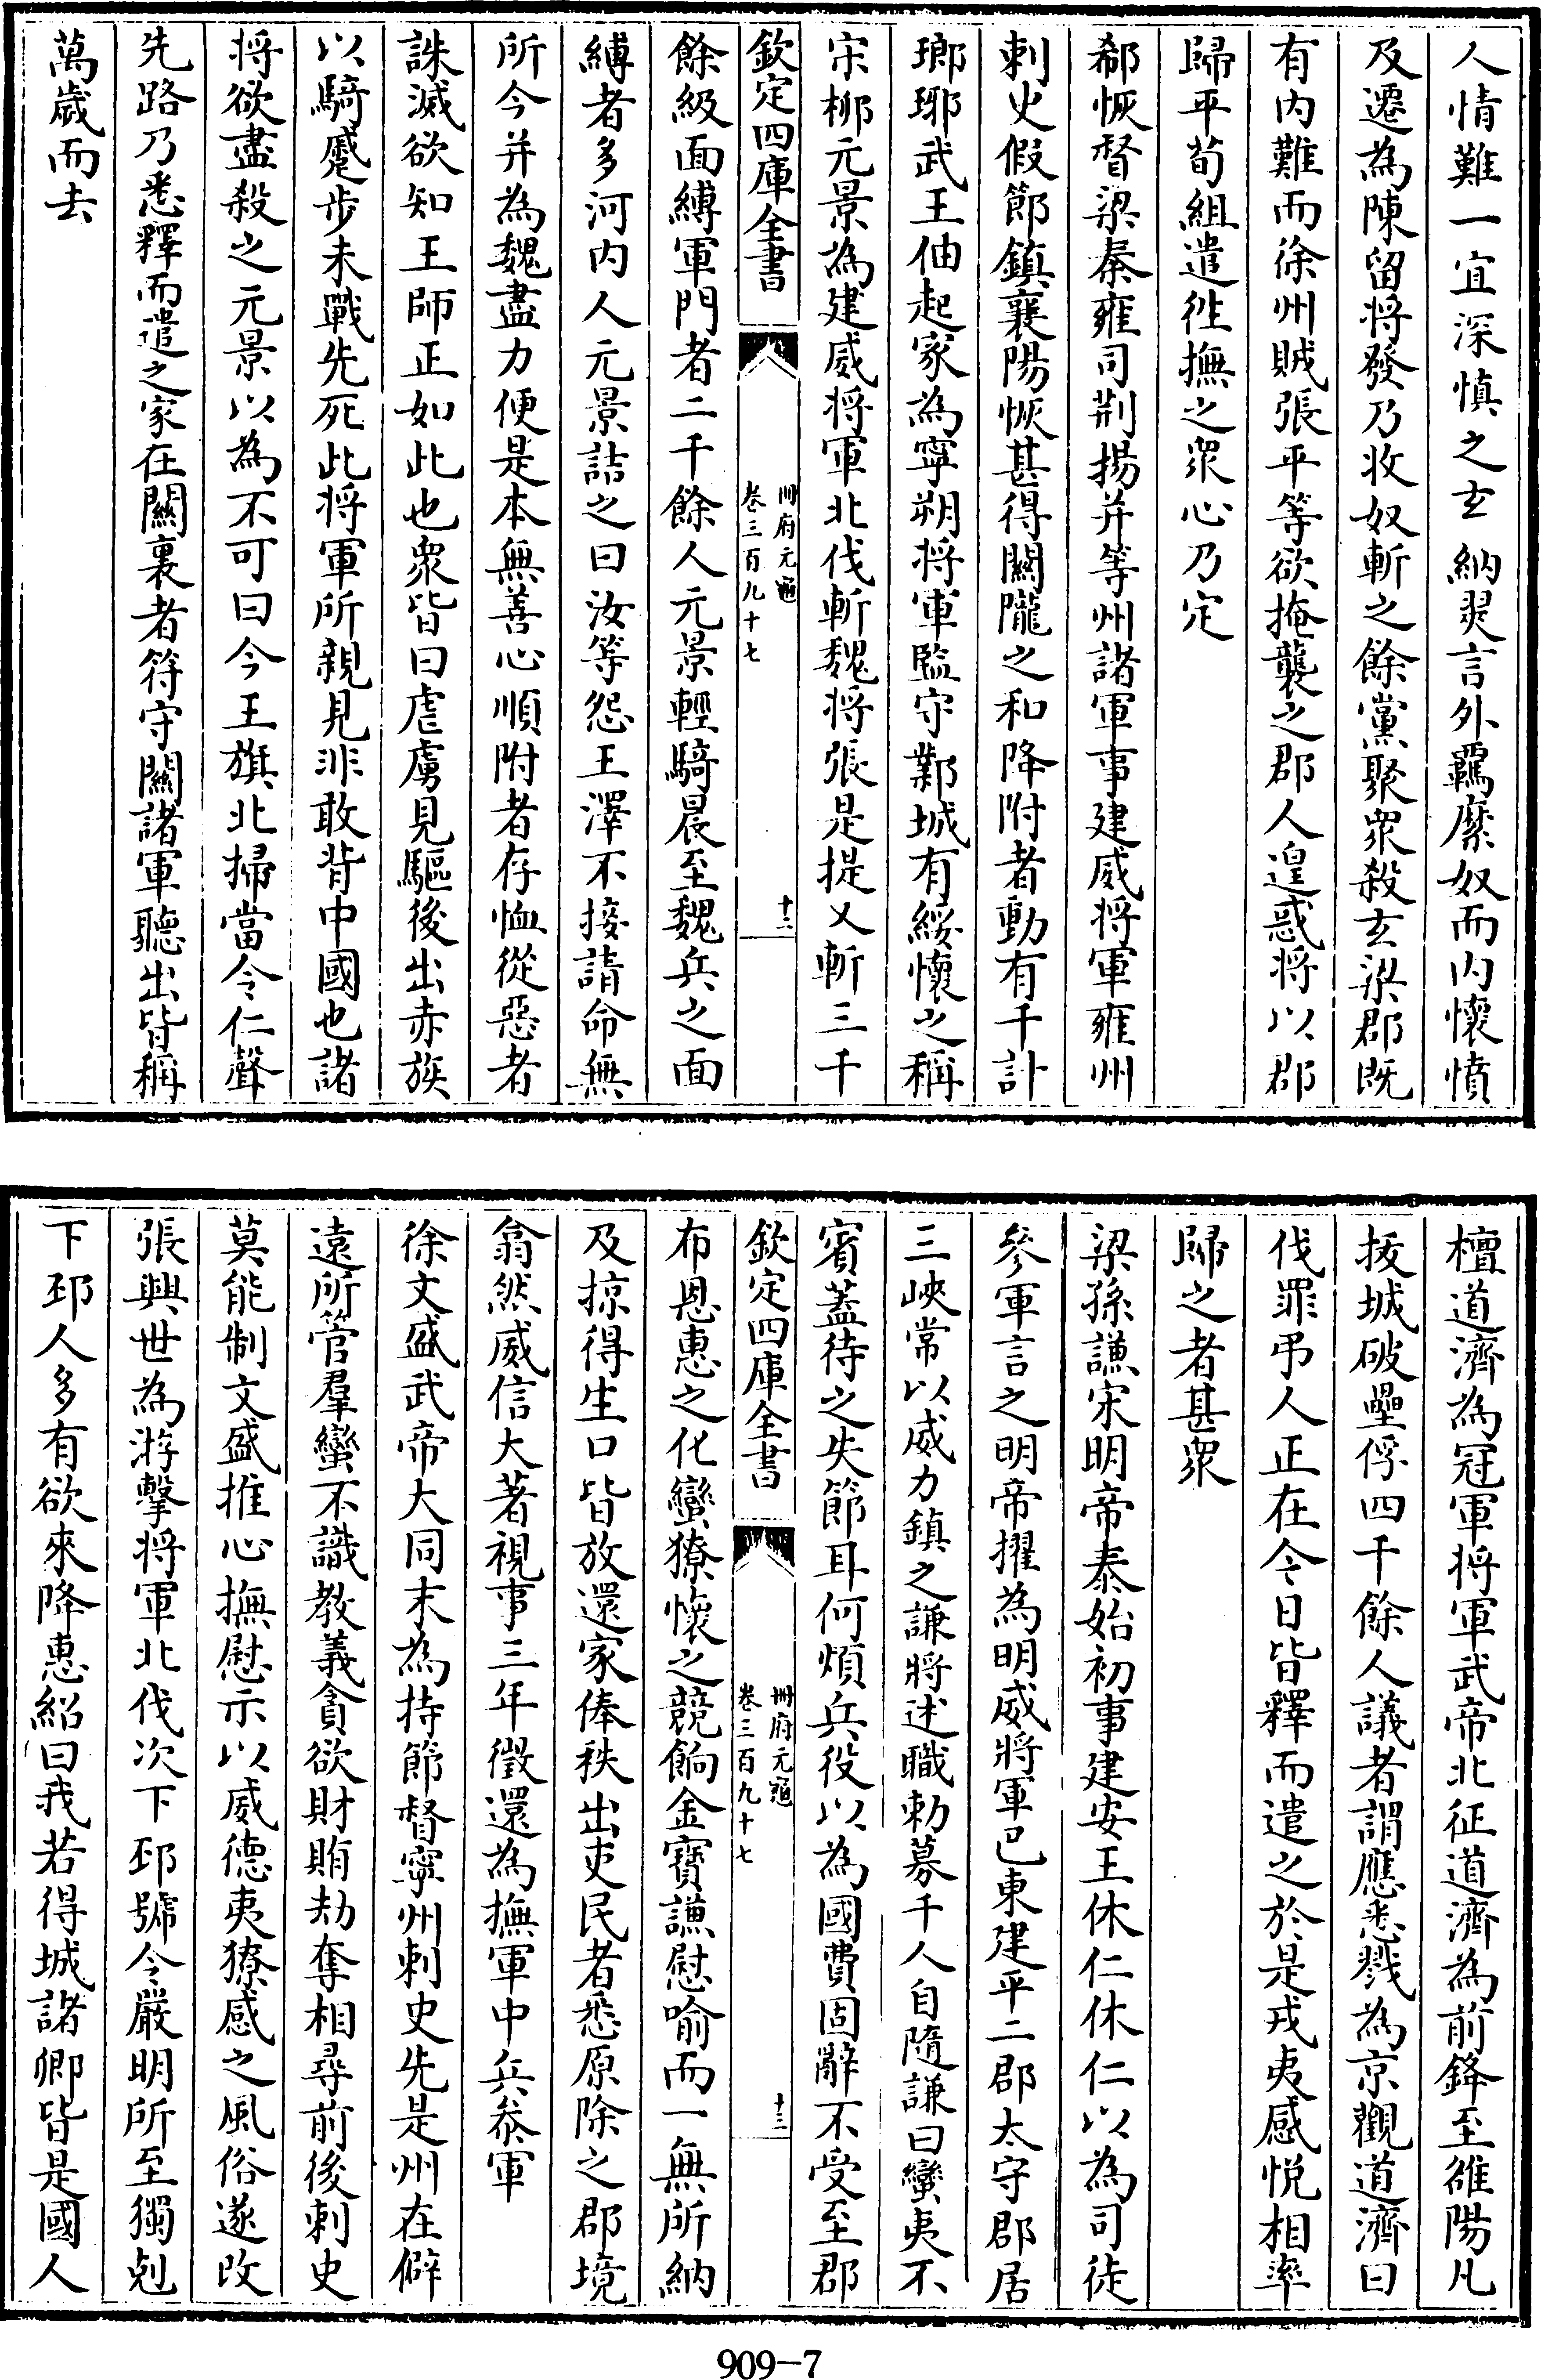 人情難一宜深慎之玄納翜言外羈縻奴而内懷憤
及遷為陳留将發乃收奴斬之餘黨聚衆殺玄梁郡既
有内難而徐州賊張平等欲掩襲之郡人遑惑将以郡
歸平荀組遣徃撫之衆心乃定
郗恢督梁秦雍司荆揚并等州諸軍事建威将軍雍州
刺史假節鎮襄陽恢甚得關隴之和降附者動有千計
瑯琊武王伷起家為寧朔将軍監守鄴城有綏懷之稱
宋柳元景為建威将軍北伐斬魏将張是提又斬三千
欽定四庫全書
冊府元龜
卷三百九十七
十二
餘級面縛軍門者二千餘人元景輕騎晨至魏兵之面
縛者多河内人元景詰之曰汝等怨王澤不接請命無
所今并為魏盡力便是本無善心順附者存恤從惡者
誅滅欲知王師正如此也衆皆曰虐虜見驅後出赤族
以騎蹙步未戰先死此将軍所親見非敢背中國也諸
将欲盡殺之元景以為不可曰今王旗北掃當令仁聲
先路乃悉釋而遣之家在關裏者符守關諸軍聽出皆稱
萬歲而去
檀道濟為冠軍将軍武帝北征道濟為前鋒至雒陽凡
拔城破壘俘四千餘人議者謂應悉戮為京觀道濟曰
伐罪弔人正在今日皆釋而遣之於是戎夷感悦相率
歸之者甚衆
梁孫謙宋明帝泰始初事建安王休仁休仁以為司徒
參軍言之明帝擢為明威將軍巴東建平二郡太守郡居
三峽常以威力鎮之謙將述職勅募千人自隨謙曰蠻夷不
賓蓋待之失節耳何煩兵役以為國費固辭不受至郡
欽定四庫全書
冊府元龜
卷三百九十七
十三
布恩惠之化蠻獠懷之競餉金寶謙慰喻而一無所納
及掠得生口皆放還家俸秩出吏民者悉原除之郡境
翕然威信大著視事三年徵還為撫軍中兵參軍
徐文盛武帝大同末為持節督寧州刺史先是州在僻
遠所管羣蠻不識教義貪欲財賄劫奪相尋前後刺史
莫能制文盛推心撫慰示以威德夷獠感之風俗遂改
張興世為游擊将軍北伐次下邳號令嚴明所至獨剋
下邳人多有欲來降惠紹曰我若得城諸卿皆是國人
909-7